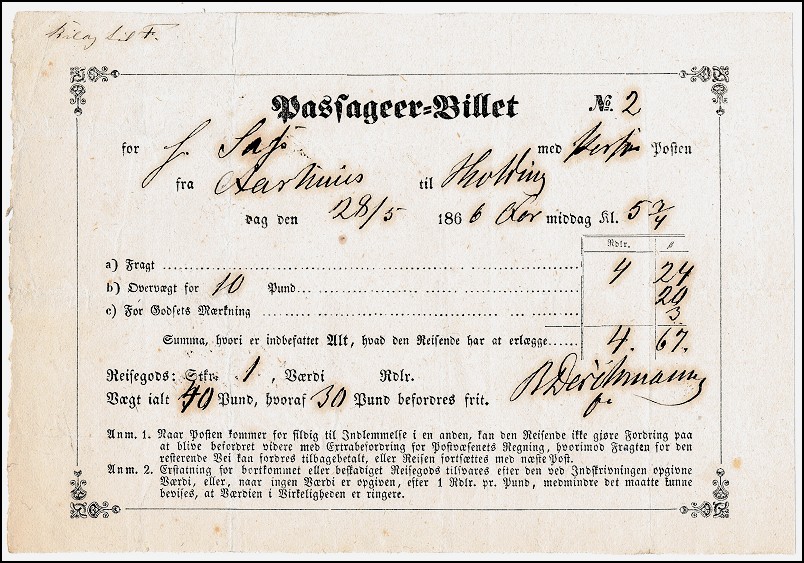 Bilag til F.
Passageer=Billet № 2
for H. Sass med Person Posten
fra Aarhuus til Kolding
Dag den 28/5 1866 For middag Kl. 5 3/4
Rdlr. β
a) Fragt 4 24
b) Overvægt for 10 Pund 20
c) For Godsets Mærkning 3
Summa, hvori er indbefattet Alt, hvad den Reisende har at erlægge 4. 67.
Reisegods: Stkr. 1, Værdi Rdlr.
Vægt ialt 40 Pund, hvoraf 30 Pund befordres frit.
Anm. 1. Naar Posten kommer for sildig til Indlemmelse i en anden, kan den Reisende ikke gjøre Fordring paa
at blive befordret videre med Extrabefordring for Postvæsenets Regning, hvorimod Fragten for den
resterende Vei kan fordres tilbagebetalt, eller Reisen fortsættes med næste Post.
Anm. 2. Erstatning for bortkommet eller beskadiget Reisegods tilsvares efter den ved Indskrivningen opgivne
Værdi, eller, naar ingen Værdi er opgiven, efter 1 Rdlr. pr. Pund, medmindre det maatte kunne
bevises, at Værdien i Virkeligheden er ringere.